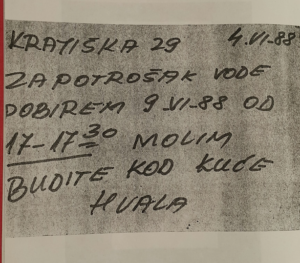 KRATIŠKA 29 4.VI-88
ZA POTROŠAK VODE
DOBIREM 9.VI-88 OD
17-17³⁰ MOLIM
BUDITE KOD KUĆE
HVALA